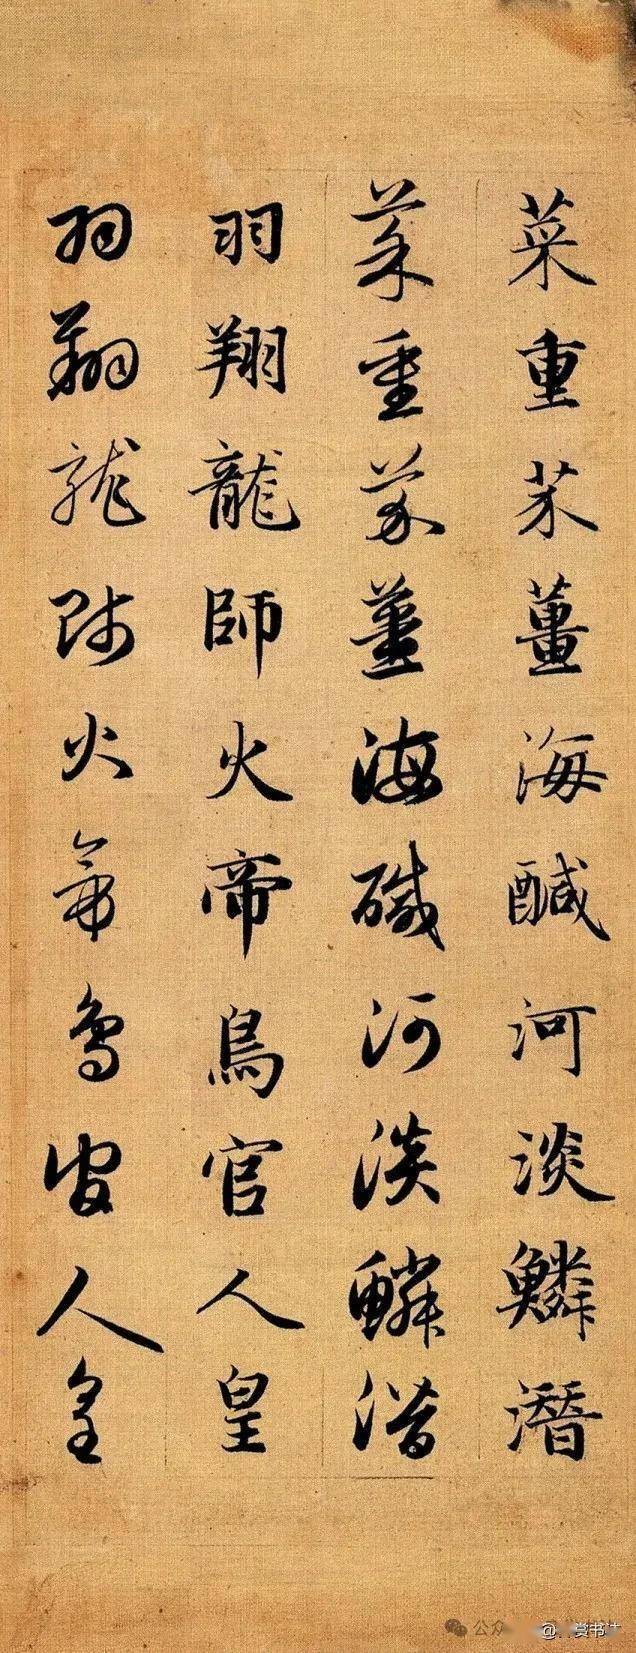 菜重芥薑海鹹河淡鱗潛
菜重芥薑海碱河淡鱗潛
羽翔龍師火帝鳥官人皇
羽翔龍師火帝鳥官人皇
公众
@ 赏书